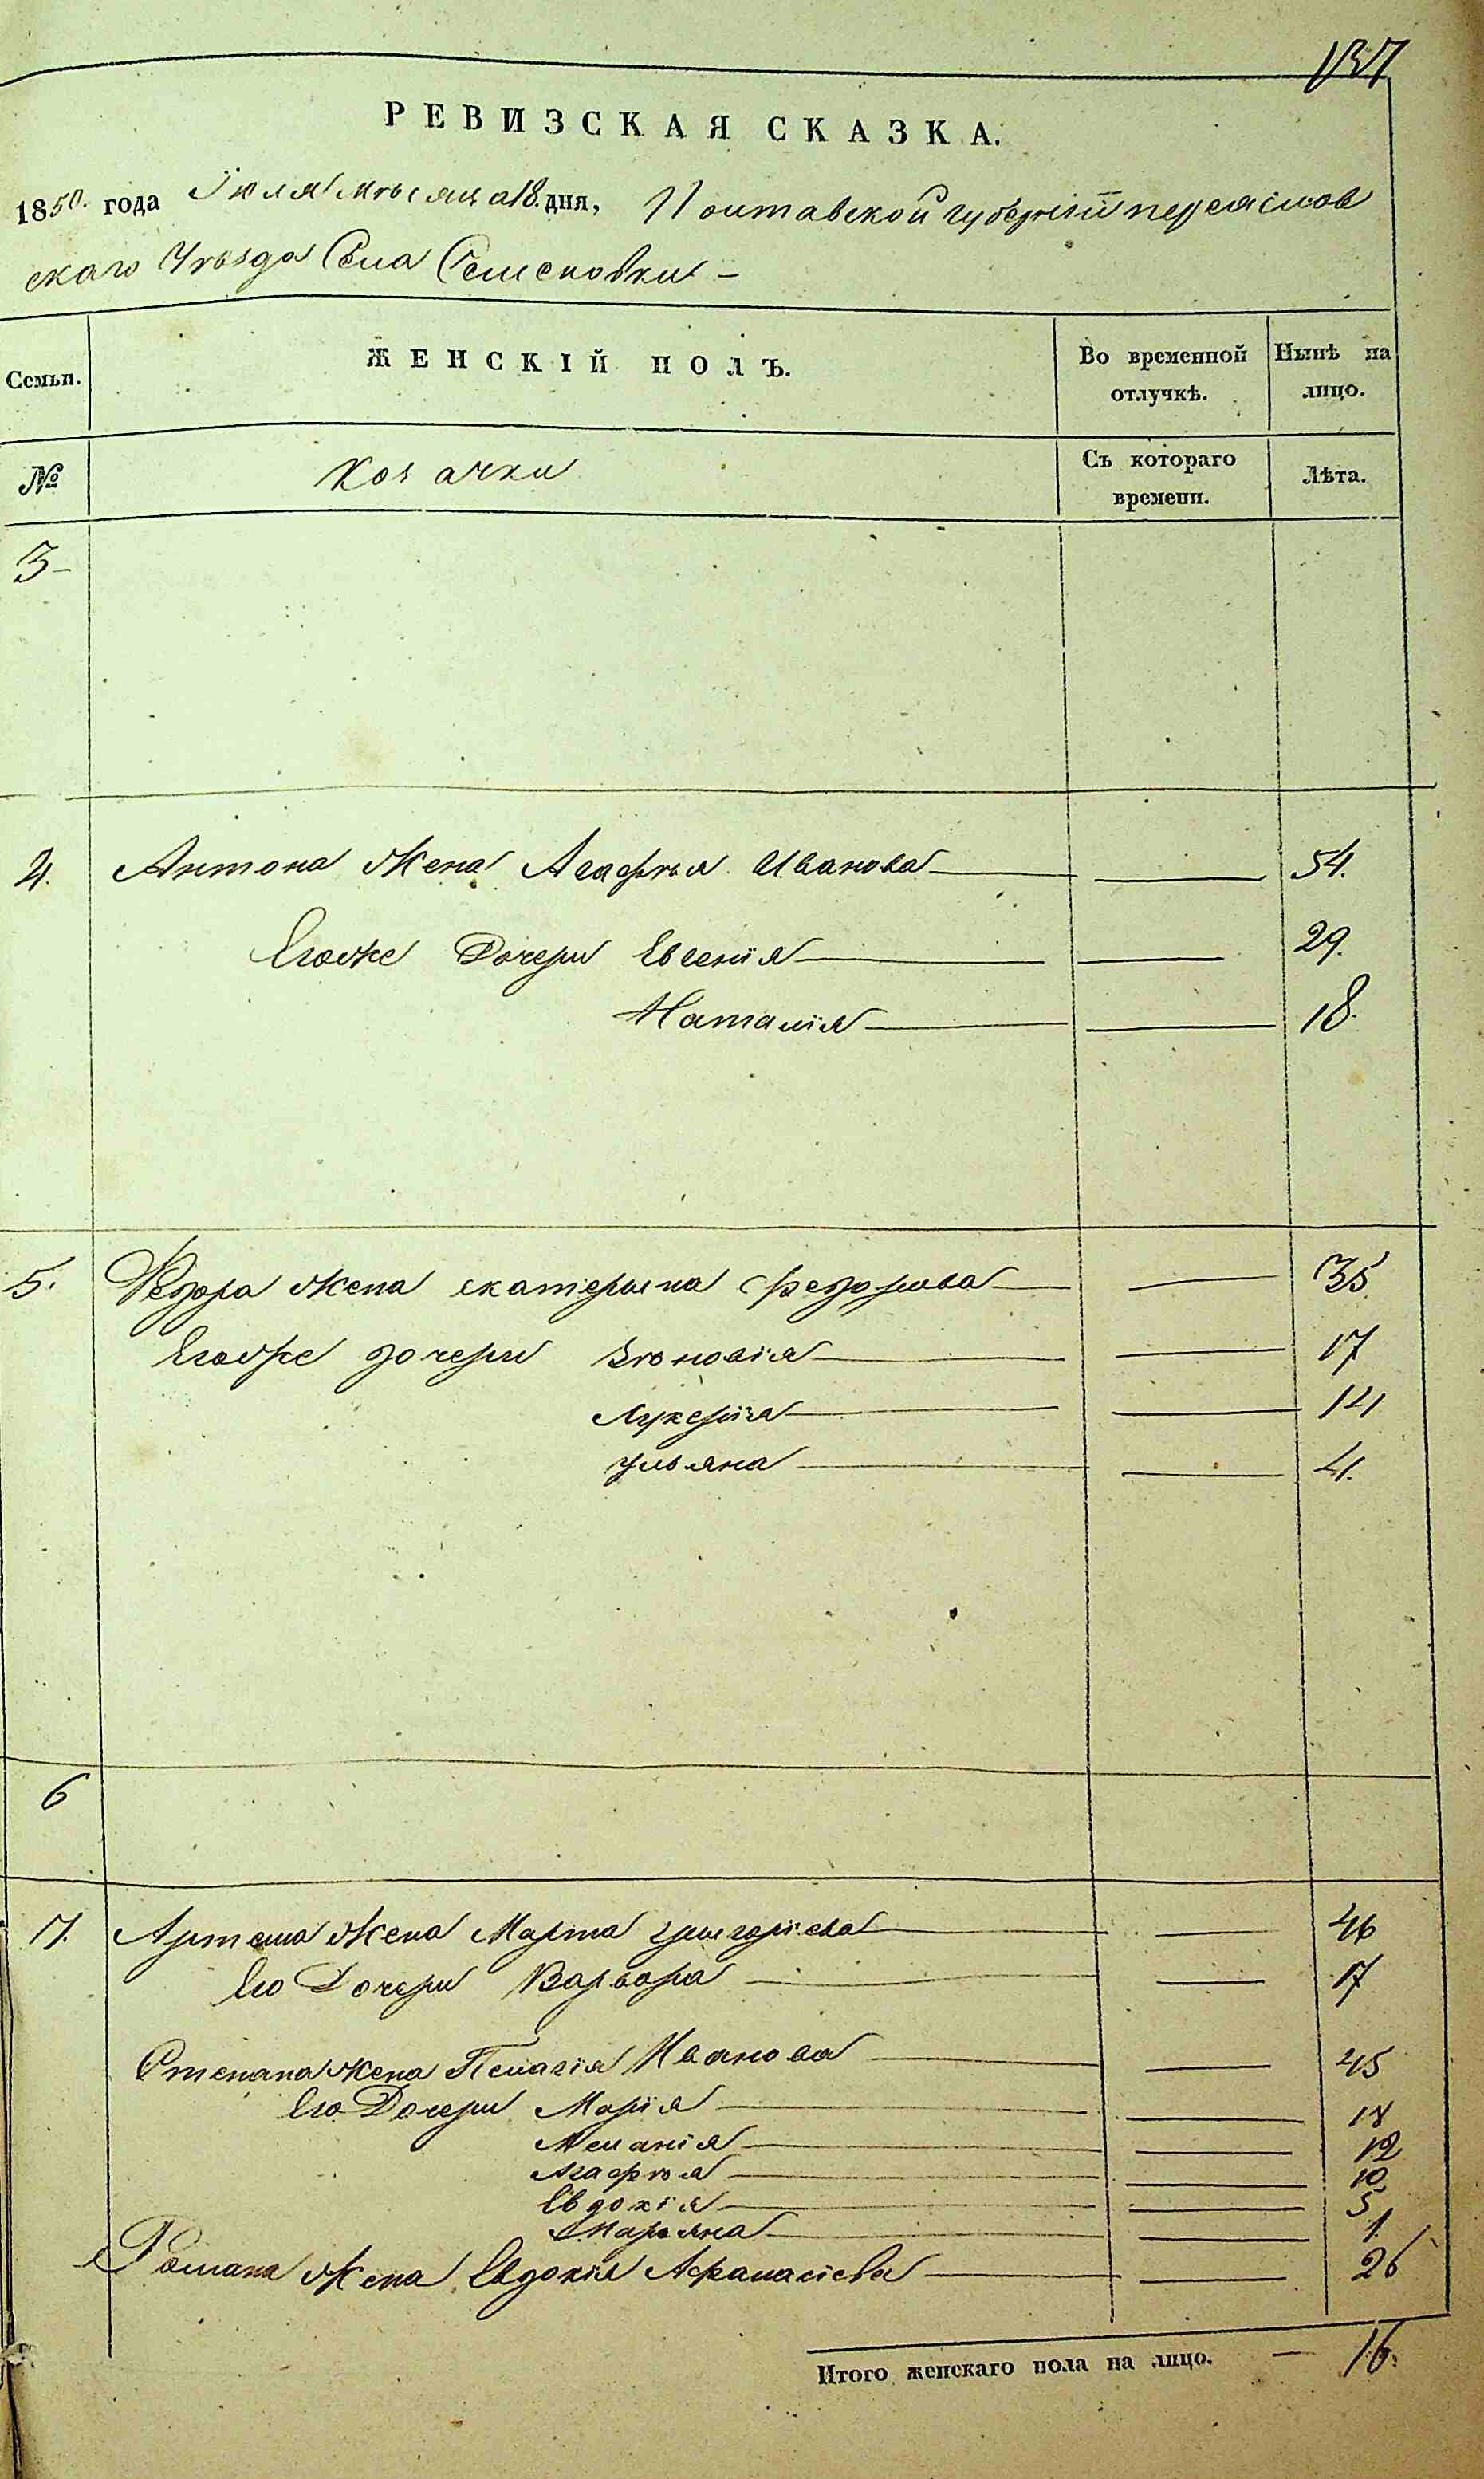 137
РЕВИЗСКАЯ СКАЗКА.
1850. года Іюля мѣсяца 18. дня, Полтавской губерніи переяслов
скаго Уѣзда Села Семеновки –
Семьи. ЖЕНСКІЙ ПОЛЪ. Во временной отлучкѣ. Нынѣ на лицо.
№ Козачки Съ котораго времени. Лѣта.
3
4. Антона Жена Агафья Иванова 54.
Егоже Дочери Евгенія 29.
Наталія 18.
5. Федора Жена екатерына федорова 35
Егоже дочери Зѣновія 17
Лукерія 14
ульяна 4.
6
7. Артема Жена Марта григоріева 46
Его Дочери Варвара 17
Степана Жена Пелагія Иванова 45
Его Дочери Марія 18
Меланія 12
Агафья 10
Евдокія 5
Марьяна 1.
Романа Жена Евдокія Афанасіева 26
Итого женскаго пола на лицо. – 16.